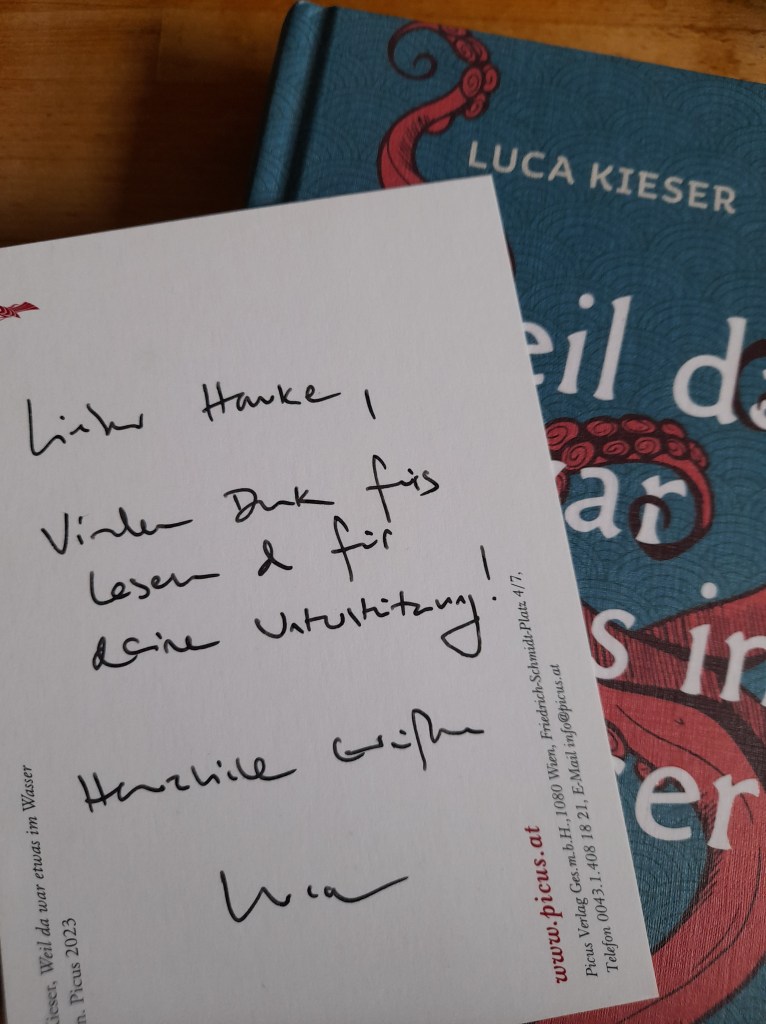 LUCA KIESER
eil da
ar
s in
er
Lieber Hauke,
Vielen Dank fürs
Lesen & für
deine Unterstützung!
Herzliche Grüße
Luca
ieser, Weil da war etwas im Wasser
n. Picus 2023
www.picus.at
Picus Verlag Ges.m.b.H., 1080 Wien, Friedrich-Schmidt-Platz 4/7,
Telefon 0043.1.408 18 21, E-Mail info@picus.at